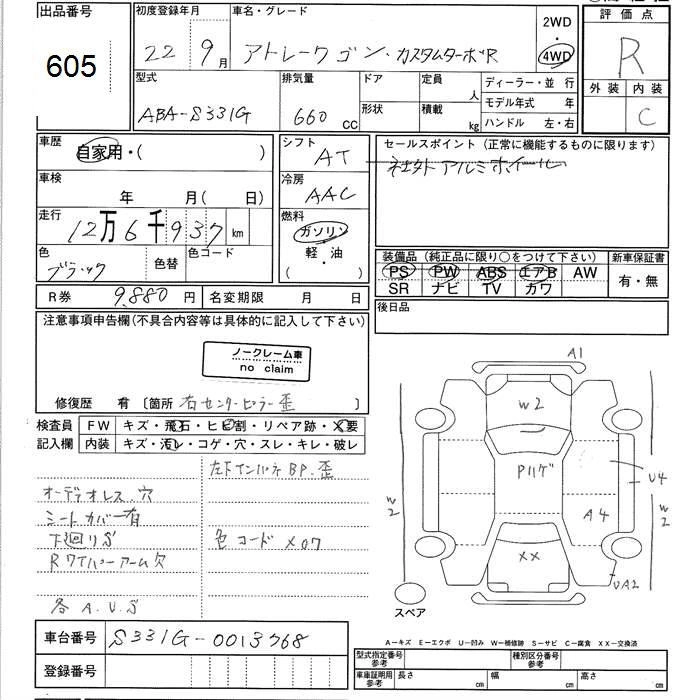 出品番号
605
初度登録年月
22 9月
車名・グレード
アトレーワゴン・カスタムターボR
2WD
・
4WD
評価点
R
外装 内装
C
型式
ABA-S331G
排気量
660 cc
ドア
形状
定員 人
積載 kg
ディーラー・並行
モデル年式 年
ハンドル 左・右
車歴
自家用・( )
シフト
AT
セールスポイント(正常に機能するものに限ります)
社外アルミホイール
車検
年 月(日)
冷房
AAC
走行
12万6千937km
燃料
ガソリン
軽・油
( )
色
ブラック
色替
色コード
装備品(純正品に限り○をつけて下さい)
PS PW ABS エアB AW
SR ナビ TV カワ
新車保証書
有・無
R券 9,880円
名変期限 月 日
後日品
注意事項申告欄(不具合内容等は具体的に記入して下さい)
ノークレーム車
no claim
修復歴 有 〔箇所 右センターピラー歪
検査員
記入欄
FW キズ・飛石・ヒビ割・リペア跡・×要
内装 キズ・汚レ・コゲ・穴・スレ・キレ・破レ
オーディオレス、穴
シートカバー有
下廻りS
RワイパーアームX
各A.U.S
左下インパネBP.歪
色コードX07
A1
W2
Pハゲ
U4
W2
W2
A4
XX
UA2
スペア
車台番号 S331G-0013768
登録番号
A−キズ E−エクボ U−凹み W−補修跡 S−サビ C−腐食 XX−交換済
型式指定番号
参考
種別区分番号
参考
車庫証明用
参考
長さ cm
幅 cm
高さ cm